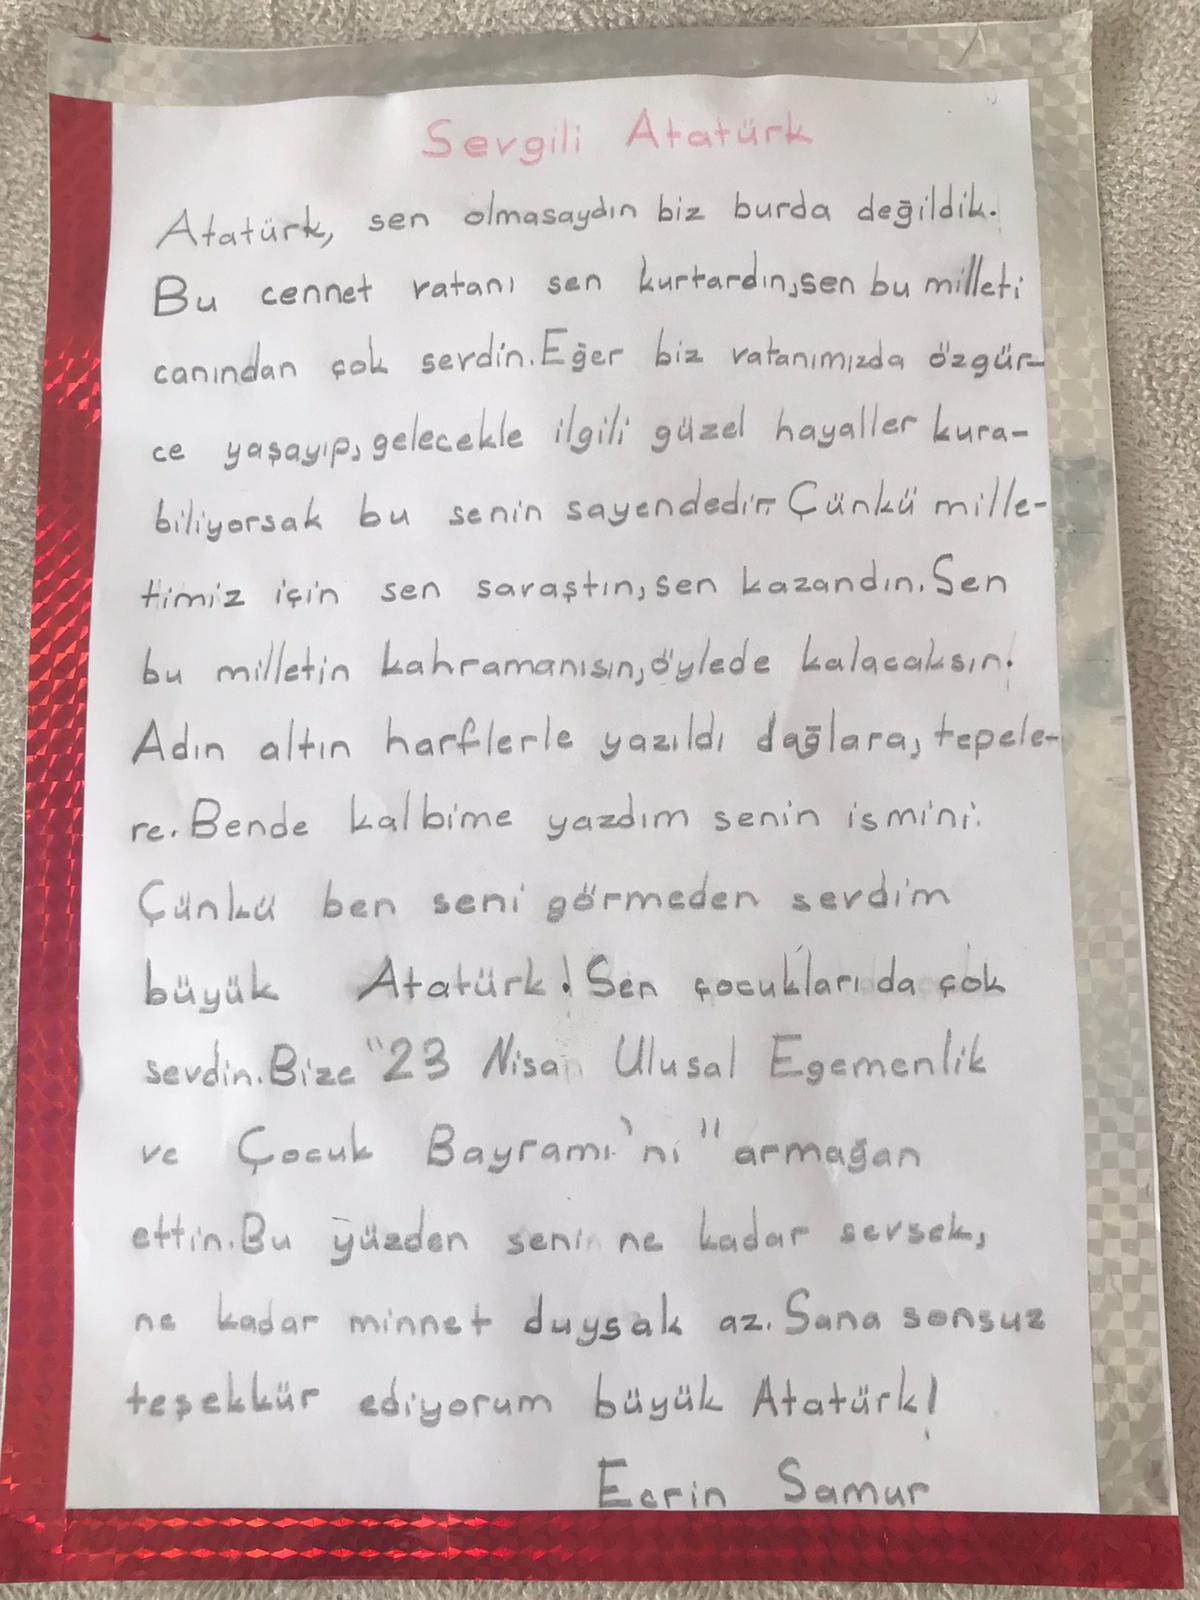 Sevgili Atatürk
Atatürk, sen olmasaydın biz burda değildik.
Bu cennet vatanı sen kurtardın, sen bu milleti
canından çok sevdin. Eğer biz vatanımızda özgür-
ce yaşayıp, gelecekle ilgili güzel hayaller kura-
biliyorsak bu senin sayendedir. Çünkü mille-
timiz için sen savaştın, sen kazandın. Sen
bu milletin kahramanısın, öylede kalacaksın!
Adın altın harflerle yazıldı dağlara, tepele-
re. Bende kalbime yazdım senin ismini.
Çünkü ben seni görmeden sevdim
büyük Atatürk! Sen çocukları da çok
sevdin. Bize "23 Nisan Ulusal Egemenlik
ve Çocuk Bayramı'nı" armağan
ettin. Bu yüzden senin ne kadar sevsek,
ne kadar minnet duysak az. Sana sonsuz
teşekkür ediyorum büyük Atatürk!
Ecrin Samur